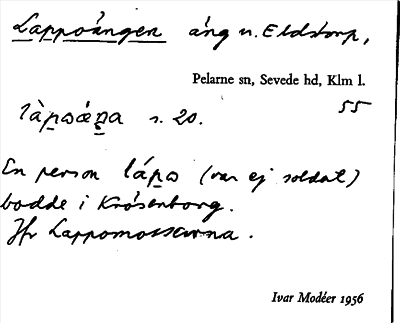 Lappoängen äng u. Eldstorp,
Pelarne sn, Sevede hd, Klm l.
55
làpωæŋa s. 20.
En person lápω (var ej soldat)
bodde i Krösenborg.
Jfr Lappomossarna.
Ivar Modéer 1956